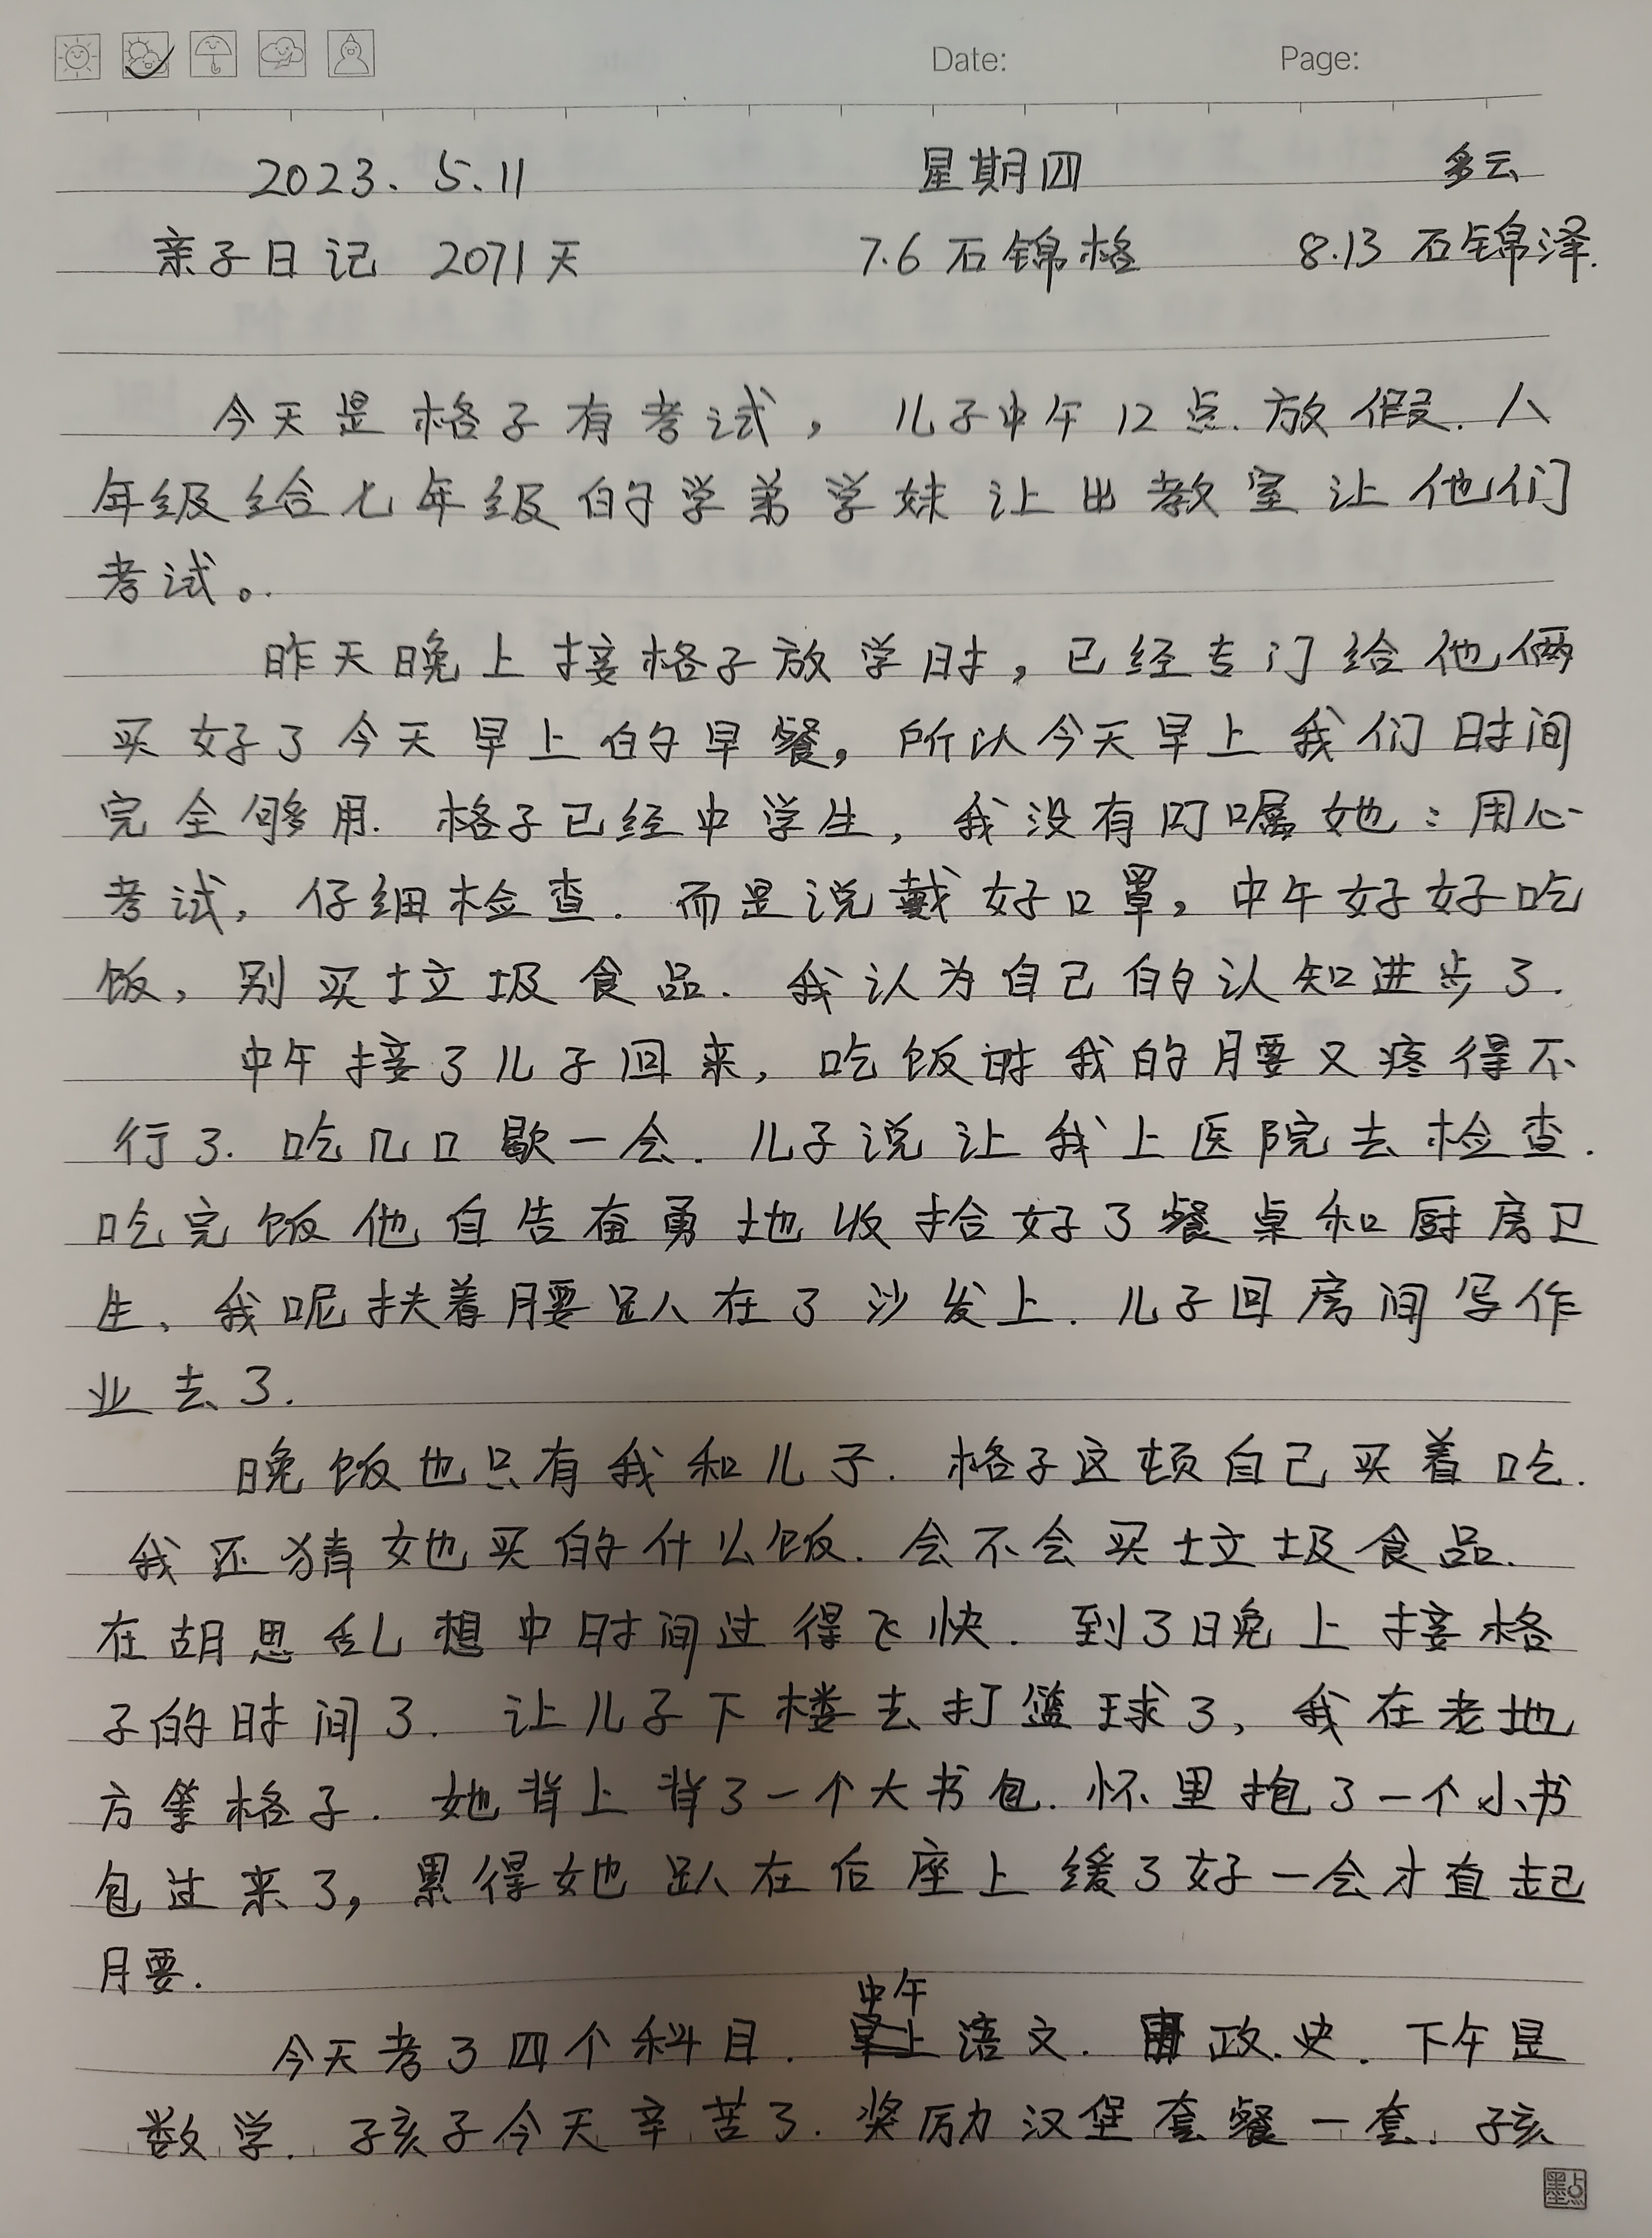 Date: Page:
2023. 5.11 星期四 多云
亲子日记 2071天 7.6 石锦格 8.13 石锦泽.
今天是格子有考试，儿子中午12点.放假.八
年级给七年级的学弟学妹让出教室让他们
考试。.
昨天晚上接格子放学时，已经专门给他俩
买好了今天早上的早餐，所以今天早上我们时间
完全够用.格子已经中学生，我没有叮嘱她：用心
考试，仔细检查.而是说戴好口罩，中午好好吃
饭，别买垃圾食品.我认为自己的认知进步了.
中午接了儿子回来，吃饭时我的腰又疼得不
行了.吃几口歇一会.儿子说让我上医院去检查.
吃完饭他自告奋勇地收拾好了餐桌和厨房卫
生、我呢扶着腰趴在了沙发上.儿子回房间写作
业去了.
晚饭也只有我和儿子.格子这顿自己买着吃.
我还猜她买的什么饭.会不会买垃圾食品.
在胡思乱想中时间过得飞快.到了晚上接格
子的时间了.让儿子下楼去打篮球了，我在老地
方等格子.她背上背了一个大书包.怀里抱了一个小书
包过来了，累得她趴在后座上缓了好一会才直起
腰.
中午
今天考了四个科目.早上语文.政.史.下午是
数学.孩子今天辛苦了.奖励汉堡套餐一套.孩
墨点